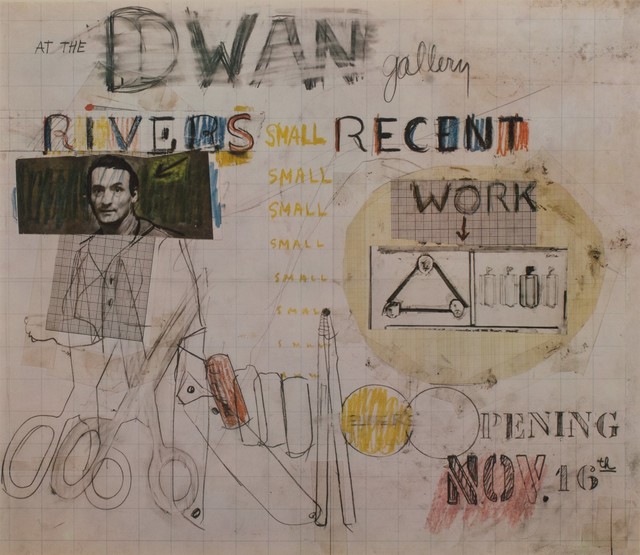 AT THE DWAN gallery
RIVERS SMALL RECENT
SMALL
SMALL
SMALL
SMALL
SMAL
WORK
OPENING
NOV. 16th